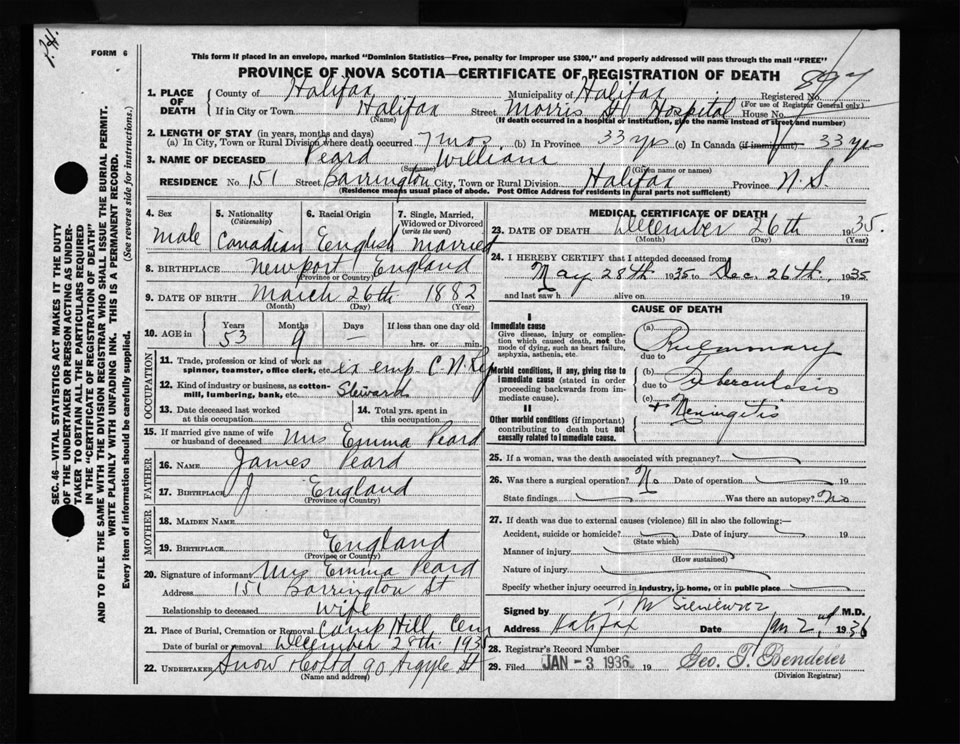 P.H.
FORM 6
This form if placed in an envelope, marked "Dominion Statistics—Free, penalty for improper use $300," and properly addressed will pass through the mail "FREE"
PROVINCE OF NOVA SCOTIA—CERTIFICATE OF REGISTRATION OF DEATH
1. PLACE OF DEATH County of Halifax Municipality of Halifax Registered No.
(For use of Registrar General only)
If in City or Town Halifax Street Morris St Hospital House No.
(Name) (If death occurred in a hospital or institution, give the name instead of street and number)
2. LENGTH OF STAY (in years, months and days)
(a) In City, Town or Rural Division where death occurred 7 mos. (b) In Province 33 yrs (c) In Canada (if immigrant) 33 yrs
3. NAME OF DECEASED Peard William
(Surname) (Given name or names)
RESIDENCE No. 151 Street Barrington City, Town or Rural Division Halifax Province N.S.
(Residence means usual place of abode. Post Office Address for residents in rural parts not sufficient)
SEC. 46—VITAL STATISTICS ACT MAKES IT THE DUTY
OF THE UNDERTAKER OR PERSON ACTING AS UNDER-
TAKER TO OBTAIN ALL THE PARTICULARS REQUIRED
IN THE "CERTIFICATE OF REGISTRATION OF DEATH"
AND TO FILE THE SAME WITH THE DIVISION REGISTRAR WHO SHALL ISSUE THE BURIAL PERMIT.
WRITE PLAINLY WITH UNFADING INK. THIS IS A PERMANENT RECORD.
Every item of information should be carefully supplied. (See reverse side for instructions.)
4. Sex Male
5. Nationality (Citizenship) Canadian
6. Racial Origin English
7. Single, Married, Widowed or Divorced (write the word) Married
8. BIRTHPLACE Newport England
(Province or Country)
9. DATE OF BIRTH March 26th 1882
(Month) (Day) (Year)
10. AGE in Years 53 Months 9 Days — If less than one day old hrs. or min.
OCCUPATION
11. Trade, profession or kind of work as spinner, teamster, office clerk, etc. ex emp. C.N.Ry
12. Kind of industry or business, as cotton-mill, lumbering, bank, etc. Steward
13. Date deceased last worked at this occupation
14. Total yrs. spent in this occupation
15. If married give name of wife or husband of deceased Mrs Emma Peard
FATHER
16. NAME James Peard
17. BIRTHPLACE England
(Province or Country)
MOTHER
18. MAIDEN NAME
19. BIRTHPLACE England
(Province or Country)
20. Signature of informant Mrs Emma Peard
Address 151 Barrington St
Relationship to deceased Wife
21. Place of Burial, Cremation or Removal Camp Hill Cem
Date of burial or removal December 28th 1935
22. UNDERTAKER Snow & Co Ltd 90 Argyle St
(Name and address)
MEDICAL CERTIFICATE OF DEATH
23. DATE OF DEATH December 26th 1935.
(Month) (Day) (Year)
24. I HEREBY CERTIFY that I attended deceased from
May 28th 1935 to Dec. 26th, 1935
and last saw h alive on 19
CAUSE OF DEATH
I
Immediate cause
Give disease, injury or complication which caused death, not the mode of dying, such as heart failure, asphyxia, asthenia, etc.
Morbid conditions, if any, giving rise to immediate cause (stated in order proceeding backwards from immediate cause).
II
Other morbid conditions (if important) contributing to death but not causally related to immediate cause.
(a) Pulmonary
due to
(b) Tuberculosis
due to
(c) + Meningitis
25. If a woman, was the death associated with pregnancy?
26. Was there a surgical operation? No Date of operation 19
State findings Was there an autopsy? No
27. If death was due to external causes (violence) fill in also the following:—
Accident, suicide or homicide? Date of injury 19
(State which)
Manner of injury
(How sustained)
Nature of injury
Specify whether injury occurred in industry, in home, or in public place
Signed by M.D.
Address Halifax Date Jan 2nd, 1936
28. Registrar's Record Number
29. Filed JAN -3 1936 19 Geo. T. Bendeler
(Division Registrar)